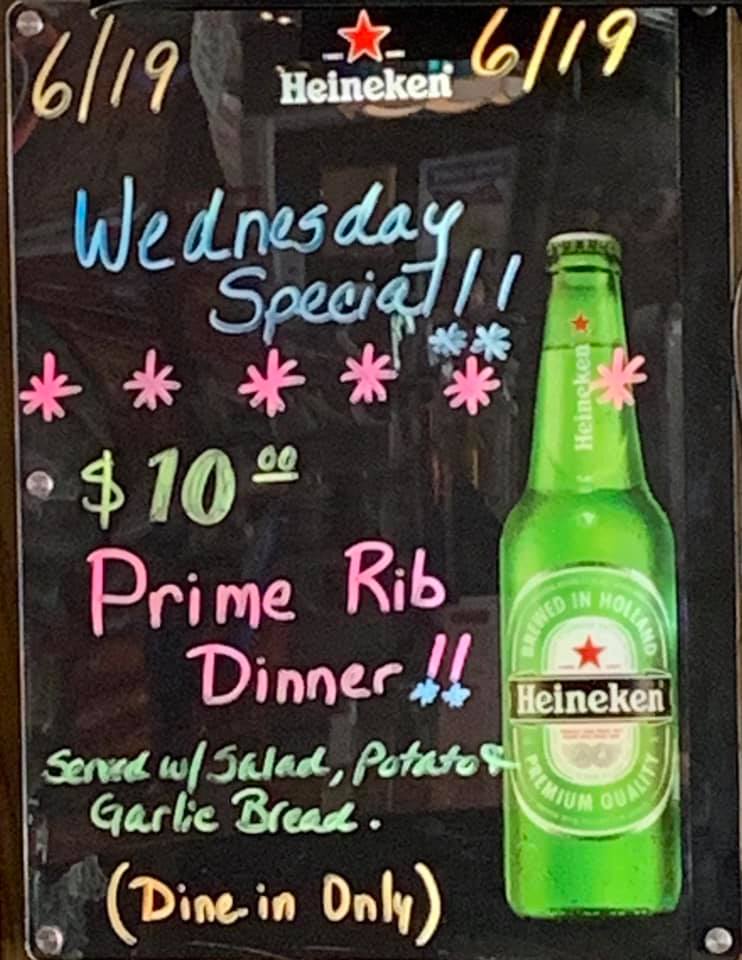 6/19 Heineken 6/19
Wednesday
Special!!
$10.00
Prime Rib
Dinner!!
Served w/ Salad, Potato &
Garlic Bread.
(Dine in Only)
Heineken
BREWED IN HOLLAND
Heineken
PREMIUM QUALITY